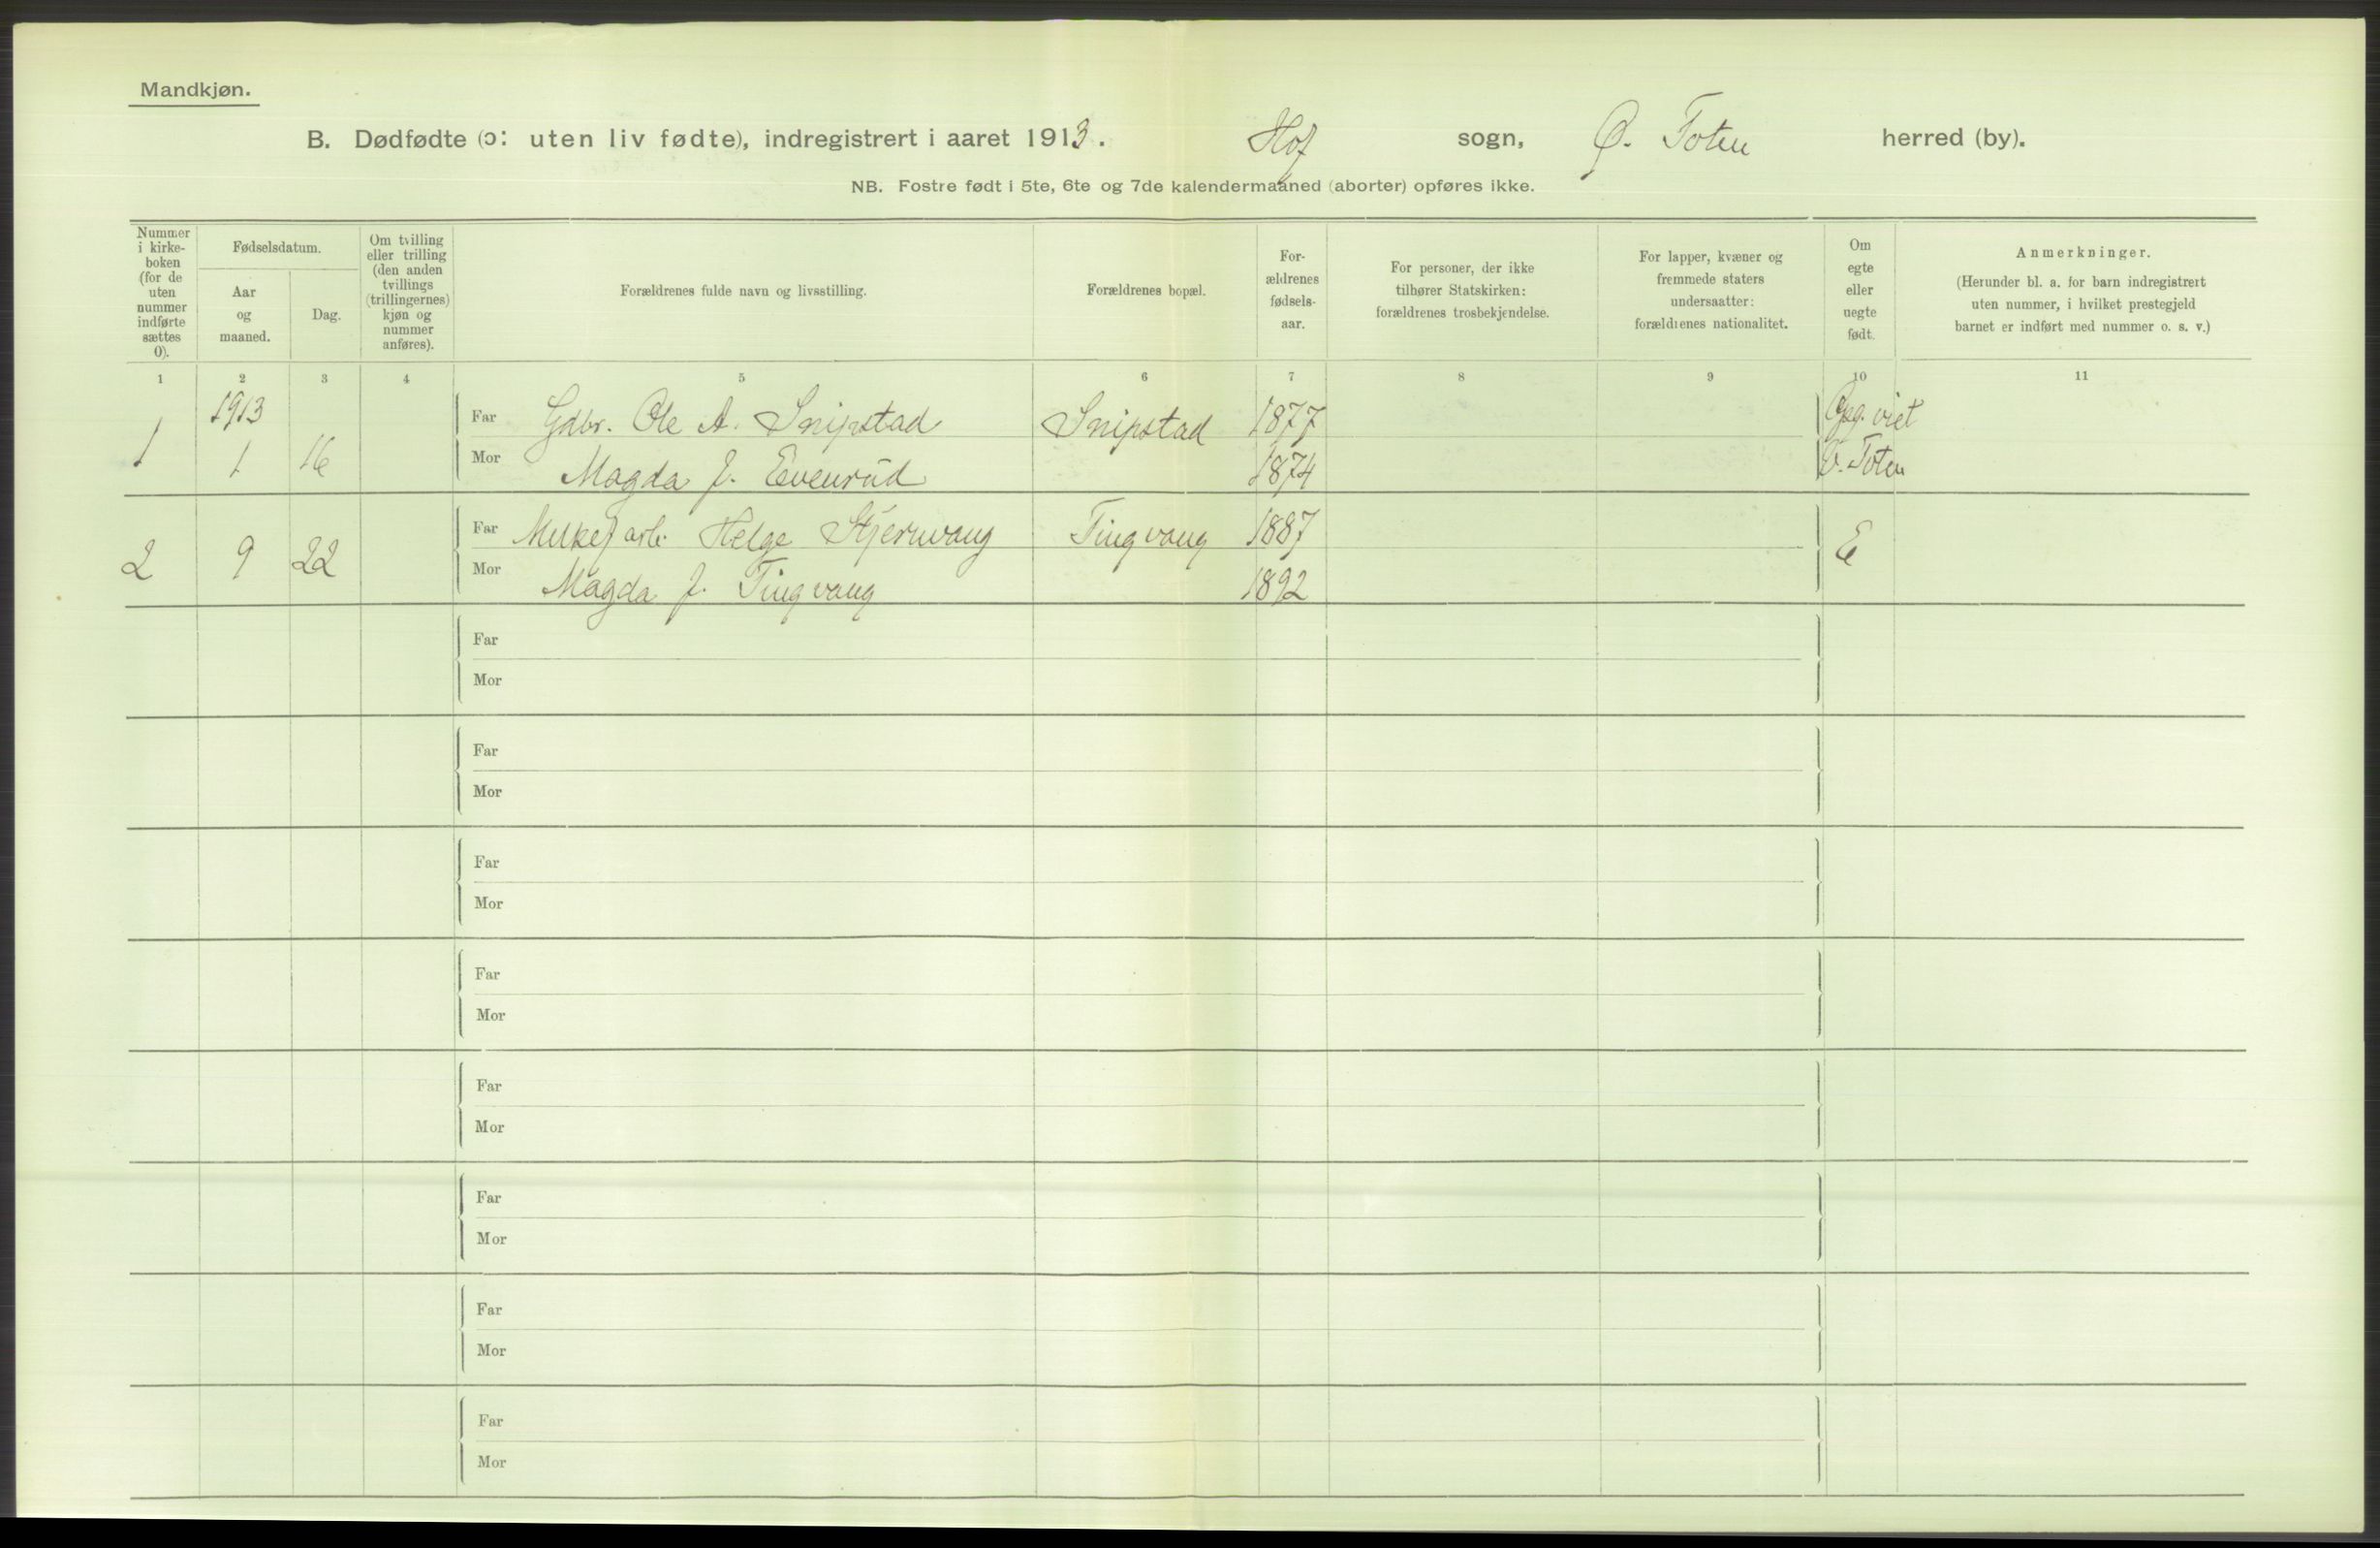 Mandkjøn.
B. Dødfødte (ɔ: uten liv fødte), indregistrert i aaret 1913. Hof sogn, Ø. Toten herred (by).
NB. Fostre født i 5te, 6te og 7de kalendermaaned (aborter) opføres ikke.
Nummer
i kirke-
boken
(for de
uten
nummer
indførte
sættes
0).
Fødselsdatum.
Aar
og
maaned.
Dag.
Om tvilling
eller trilling
(den anden
tvillings
(trillingernes)
kjøn og
nummer
anføres).
Forældrenes fulde navn og livsstilling.
Forældrenes bopæl.
For-
ældrenes
fødsels-
aar.
For personer, der ikke
tilhører Statskirken:
forældrenes trosbekjendelse.
For lapper, kvæner og
fremmede staters
undersaatter:
forældrenes nationalitet.
Om
egte
eller
uegte
født.
Anmerkninger.
(Herunder bl. a. for barn indregistrert
uten nummer, i hvilket prestegjeld
barnet er indført med nummer o. s. v.)
1 2 3 4 5 6 7 8 9 10 11
1913
1 1 16
Far Gdbr. Ole A. Snipstad Snipstad 1877 viet
Mor Magda J. Evenrud 1874 Ø. Toten
2 9 22
Far arb. Helge Stjernvang Tingvang 1887 E
Mor Magda J. Tingvang 1892
Far
Mor
Far
Mor
Far
Mor
Far
Mor
Far
Mor
Far
Mor
Far
Mor
Far
Mor